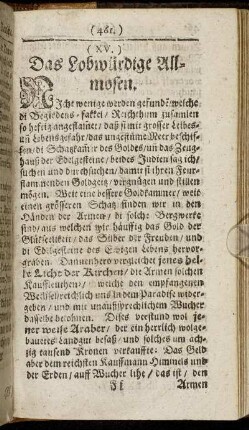 (481.)
(XV.)
Das Lobwürdige All-
mosen.
NJcht wenige werden gefundē welche
di Begirdens-Fakkel / Reichthum zusamlen
so heftig angeflam̄et; daß si mit grosser Leibes-
uñ Lebensgefahr / das ungestüme Meer beschif-
fen / di Schatzkam̄er des Goldes / uñ das Zeug-
hauß der Edelgesteine / beides Indien sag ich /
suchen und durchsuchen / damit si ihren
Goldgeitz / vergnügen und stillen
mögen. Weit eine bessere Goldkammer / weit
einen grösseren Schatz finden wir in den
Händen der Armen / di solche Bergwerke
sind / aus welchen wir häuffig das Gold der
Glükseligkeit / das Silber der Freuden / und
di Edelgesteine des Ewigen Lebens hervor-
graben. Dannenhero vergleichet jenes helle
Licht der Kirchen / die Armen solchen
Kauffleuthen / welche den empfangenen
Wechsel reichlich uns in dem Paradise wider-
geben / und mit unaußsprechlichem Wucher
daselbsten bezahlen. Dises verstund wol je-
ner weise Araber / der ein herrlich wolge-
bautes Landgut besaß / und solches um ach-
zig tausend Kronen verkauffte. Das Geld
aber dem reichsten Kauffmann Himmels und
der Erden / auff Wucher lihe / das ist / den
Armen